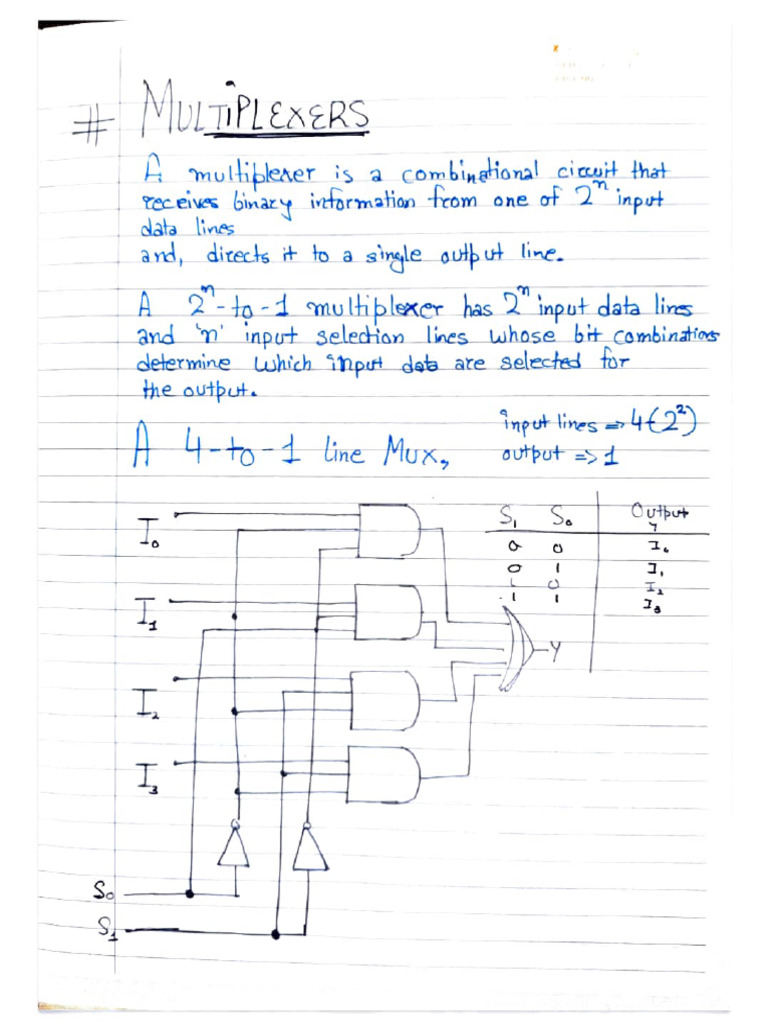 # MULTIPLEXERS
A multiplexer is a combinational circuit that
receives binary information from one of 2^n input
data lines
and, directs it to a single output line.
A 2^n-to-1 multiplexer has 2^n input data lines
and 'n' input selection lines whose bit combinations
determine which input data are selected for
the output.
input lines => 4(2^2)
A 4-to-1 line Mux,
output => 1
S1 S0 Output
Y
0 0 I0
0 1 I1
1 0 I2
1 1 I3
I0
I1
Y
I2
I3
S0
S1